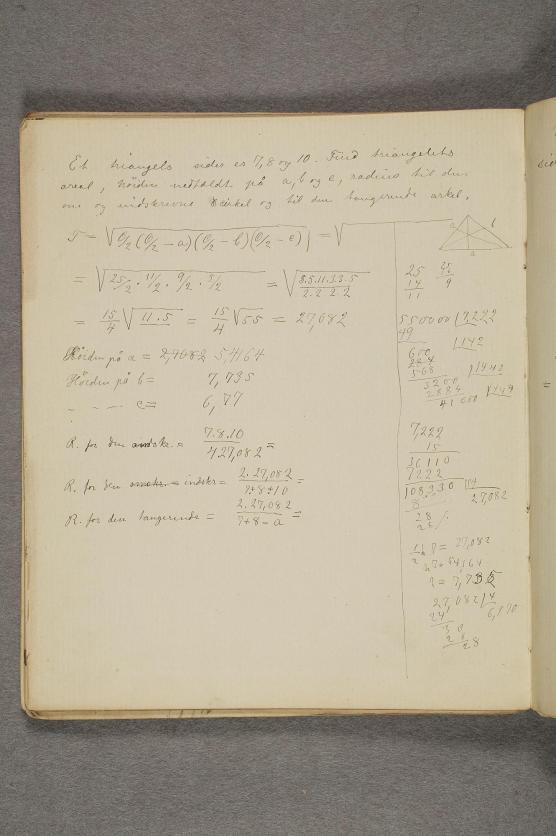 Et triangels sider er 7, 8 og 10. Find triangelets
areal, höiden nedfaldt på a, b og c, radius til den
om og indskrevne cirkel og til den tangerende cirkel.
T = √(O/2 (O/2 - a)(O/2 - b)(O/2 - c)) = √
= √(25/2 · 11/2 · 9/2 · 5/2) = √(5.5.11.3.3.5 / 2.2.2.2)
= 15/4 √11.5 = 15/4 √55 = 27,082
Höiden på a = 54164
Höiden på b = 7,735
- - - c = 6,77
R. for den omskr. = 7.8.10 / 4 27,082 =
R. for den indskr = 2.27,082 / 7+8+10 =
R. for den tangerende = 2.27,082 / 7+8-a =
a b
a
25
14
11
550000 | 7,222
49
600 | 142
568
3200 | 1442
2884
7,222
15
36110
7222
108,330
27,082
8
28
28
= 27,082
= 54164
= 7,735
27,082 | 4
24
3 0
2 8
28